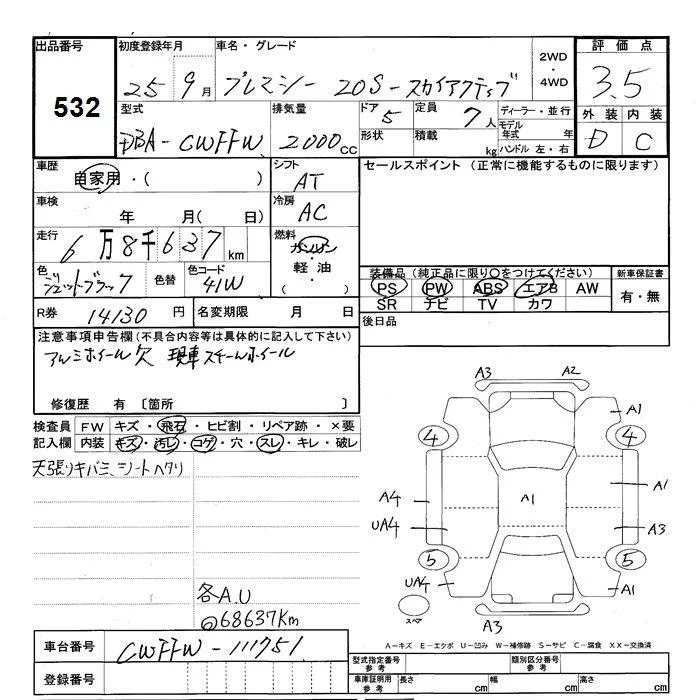 出品番号 初度登録年月 車名・グレード 2WD・4WD 評価点
532 25 9月 プレマシー 20S-スカイアクティブ 3.5
型式 排気量 ドア 5 定員 7人 ディーラー・並行 外装 内装
DBA-CWFFW 2000cc 形状 積載 kg モデル年式 年 D C
ハンドル 左・右
車歴 自家用・( ) シフト AT セールスポイント (正常に機能するものに限ります)
車検 年 月( 日) 冷房 AC
走行 6万8千637km 燃料 ガソリン
色 ジェットブラック 色替 色コード 41W 軽油・ ( )
装備品(純正品に限り○をつけてください) 新車保証書
PS PW ABS エアB AW 有・無
SR ナビ TV カワ
R券 14130円 名変期限 月 日 後日品
注意事項申告欄(不具合内容等は具体的に記入して下さい)
アルミホイール欠 現車スチールホイール
修復歴 有 [箇所 ]
検査員 FW キズ・飛石・ヒビ割・リペア跡・×要
記入欄 内装 キズ・汚レ・コゲ・穴・スレ・キレ・破レ
天張りキバミ、シートヘタリ
A3 A2
A1
4 4
A4 A1 A1
UA4 A3
5 5
UA4 A1
スペア A3
各A.U
68637Km
A-キズ E-エクボ U-凹み W-補修跡 S-サビ C-腐食 XX-交換済
車台番号 CWFFW-111751
登録番号
型式指定番号 参考 類別区分番号 参考
車庫証明用 参考 長さ cm 幅 cm 高さ cm